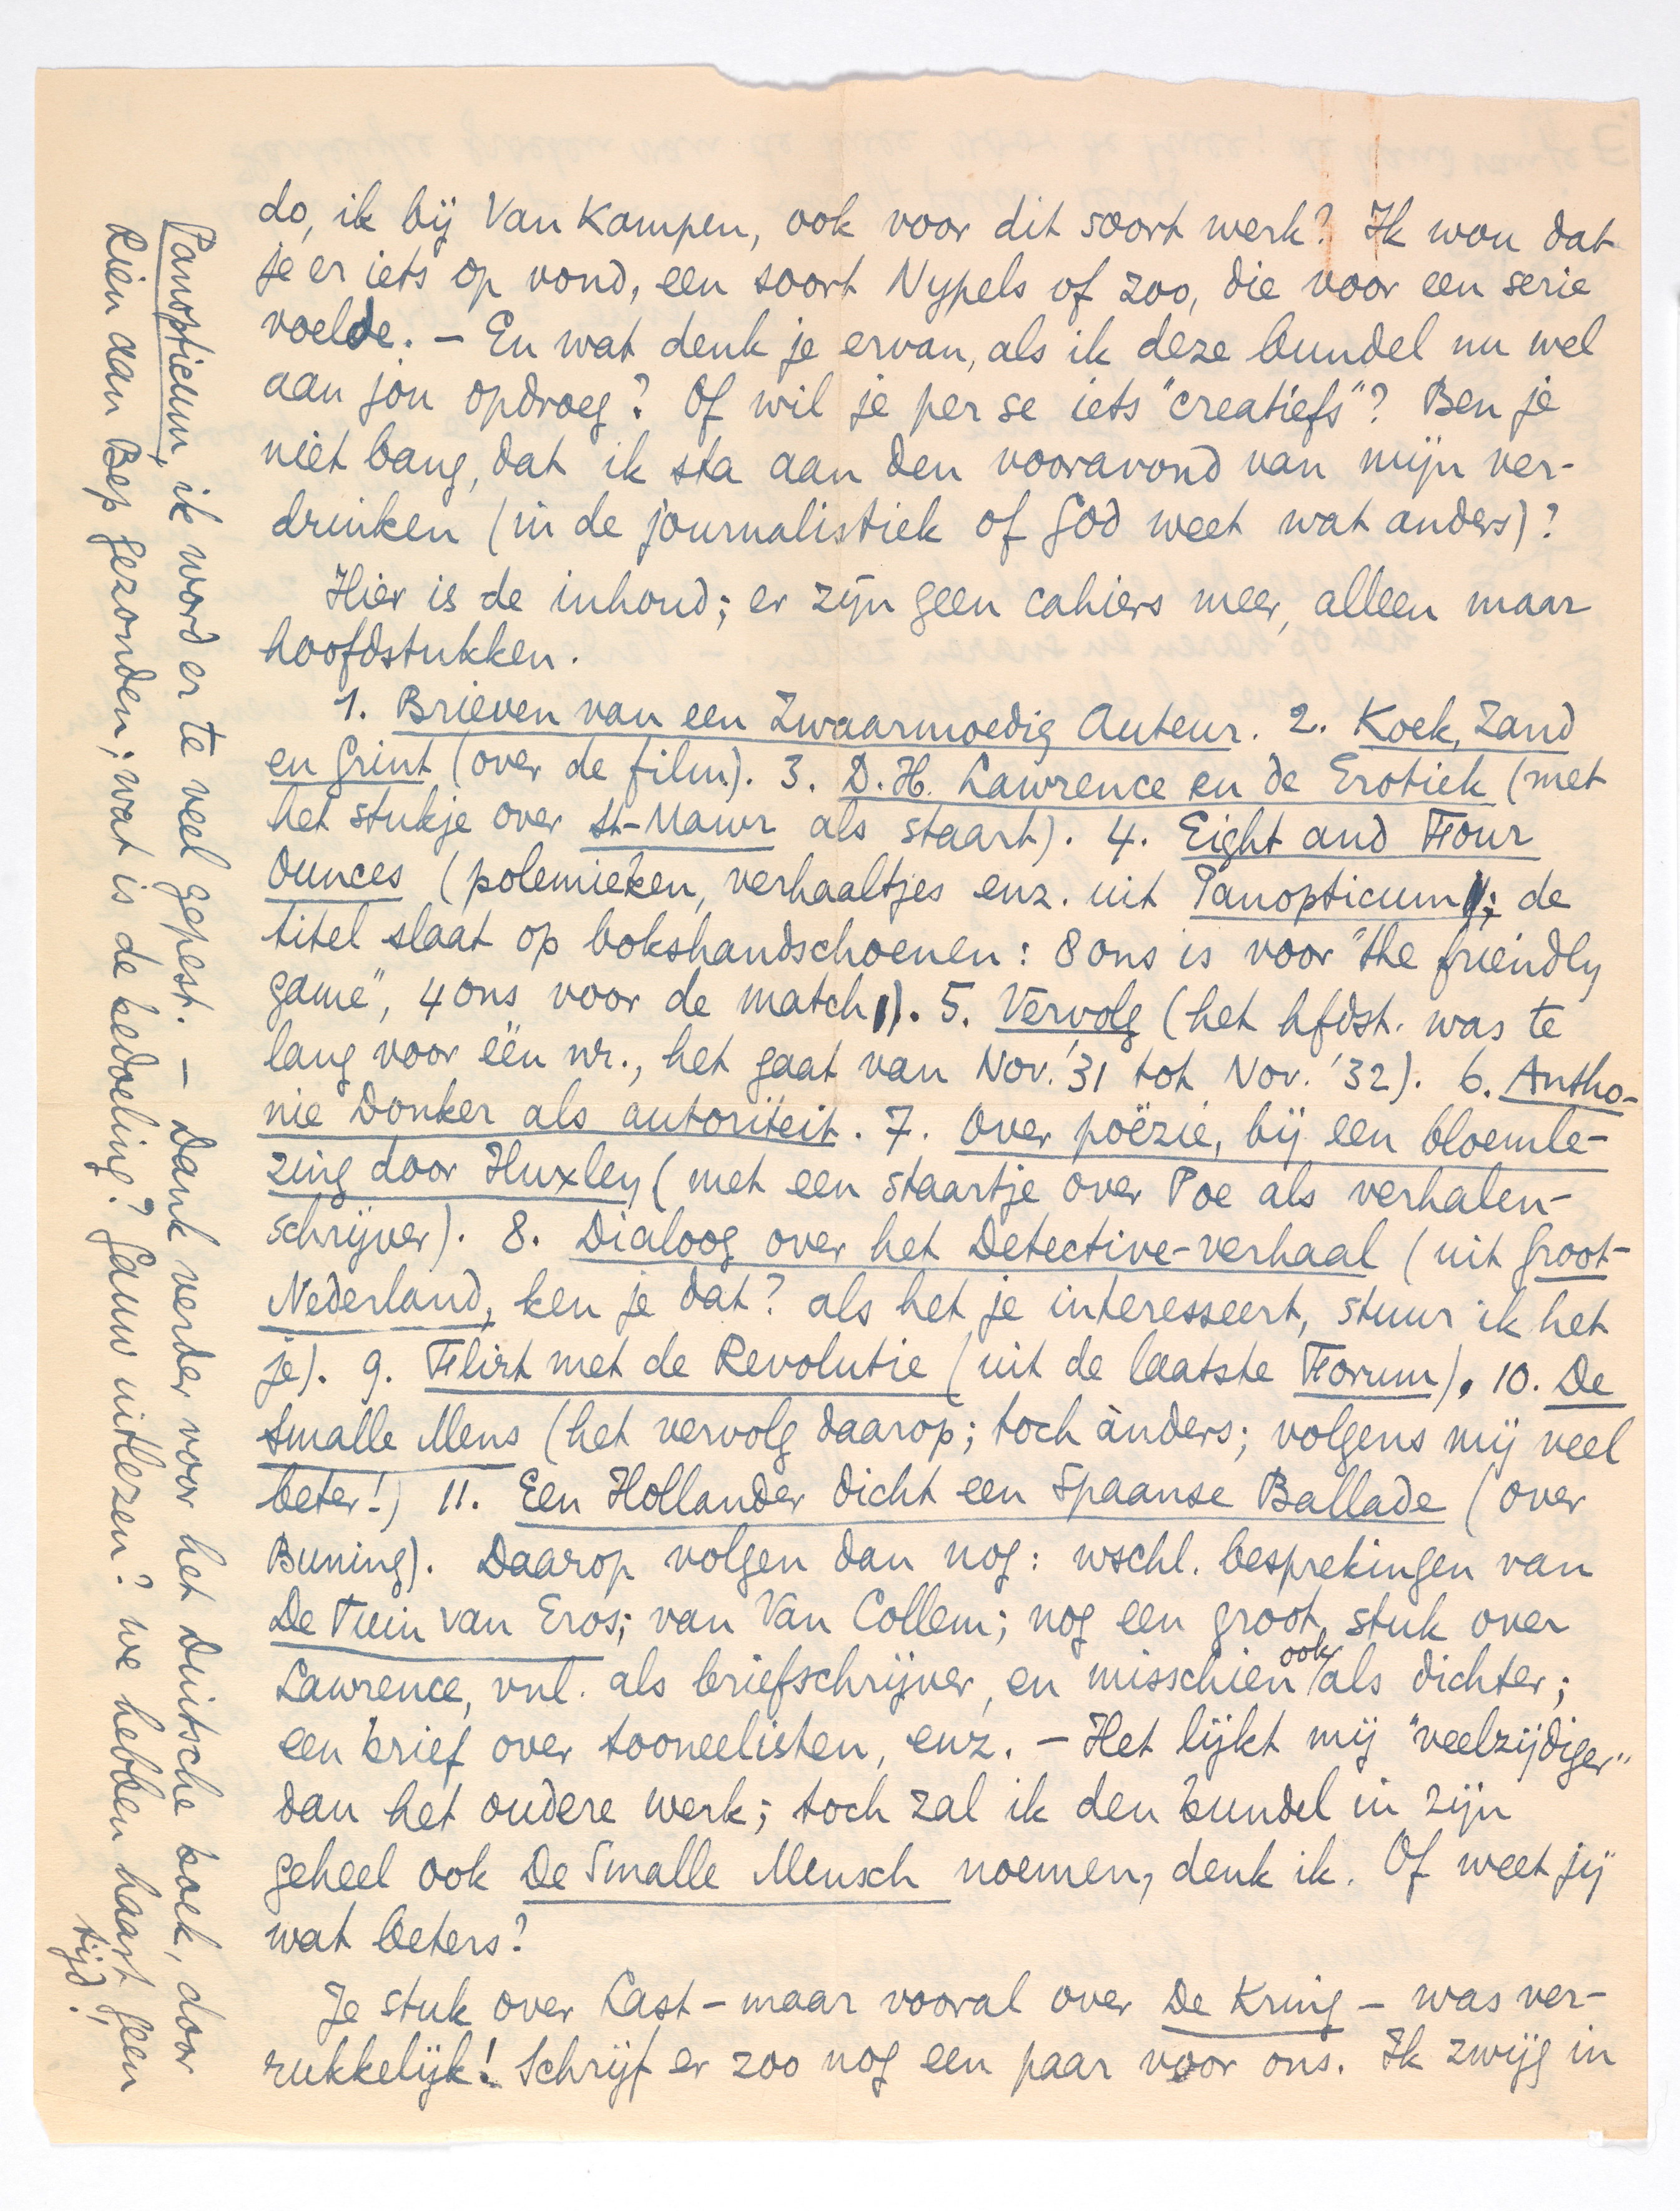 do, ik bij Van Kampen, ook voor dit soort werk? Ik wou dat
je er iets op vond, een soort Nypels of zoo, die voor een serie
voelde. – En wat denk je ervan, als ik deze bundel nu wel
aan jou opdroeg? Of wil je per se iets "creatiefs"? Ben je
niet bang, dat ik sta aan den vooravond van mijn ver-
drinken (in de journalistiek of God weet wat anders)?
Hier is de inhoud; er zijn geen cahiers meer, alleen maar
hoofdstukken.
1. Brieven van een Zwaarmoedig Auteur. 2. Koek, Zand
en Grint (over de film). 3. D.H. Lawrence en de Erotiek (met
het stukje over St-Mawr als staart). 4. Eight and Four
Ounces (polemieken, verhaaltjes enz. uit Panopticum; de
titel slaat op bokshandschoenen: 8 ons is voor "the friendly
game", 4 ons voor de match). 5. Vervolg (het hfdst. was te
lang voor één nr., het gaat van Nov. '31 tot Nov. '32). 6. Antho-
nie Donker als autoriteit. 7. Over poëzie, bij een bloemle-
zing door Huxley (met een staartje over Poe als verhalen-
schrijver). 8. Dialoog over het Detective-verhaal (uit Groot-
Nederland, ken je dat? als het je interesseert, stuur ik het
je). 9. Flirt met de Revolutie (uit de laatste Forum). 10. De
Smalle Mens (het vervolg daarop; toch ànders; volgens mij veel
beter!) 11. Een Hollander dicht een Spaanse Ballade (over
Buning). Daarop volgen dan nog: wschl. besprekingen van
De Tuin van Eros; van Van Collem; nog een groot stuk over
Lawrence, vnl. als briefschrijver, en misschien ook als dichter;
een brief over tooneelisten, enz. – Het lijkt mij "veelzijdiger"
dan het oudere werk; toch zal ik den bundel in zijn
geheel ook De Smalle Mensch noemen, denk ik. Of weet jij
wat beters?
Je stuk over Last – maar vooral over De Kring – was ver-
rukkelijk! Schrijf er zoo nog een paar voor ons. Ik zwijg in
Panopticum, ik word er te veel gepest. – Dank verder voor het Duitsche boek, door
Rien aan Bep gezonden; wat is de bedoeling? Gauw uitlezen? we hebben haast geen
tijd!